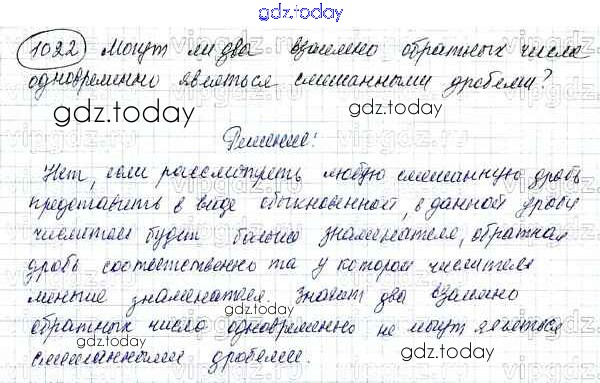 gdz.today
1022 Могут ли два взаимно обратных числа
одновременно являться смешанными дробями?
gdz.today gdz.today
Решение:
Нет, если рассмотреть любую смешанную дробь
представить в виде обыкновенной, в данной дроби
числитель будет больше знаменателя, обратная
дробь соответственно та у которой числитель
меньше знаменателя. Значит два взаимно
обратных числа одновременно не могут являться
смешанными дробями.
gdz.today gdz.today
gdz.today gdz.today
gdz.today